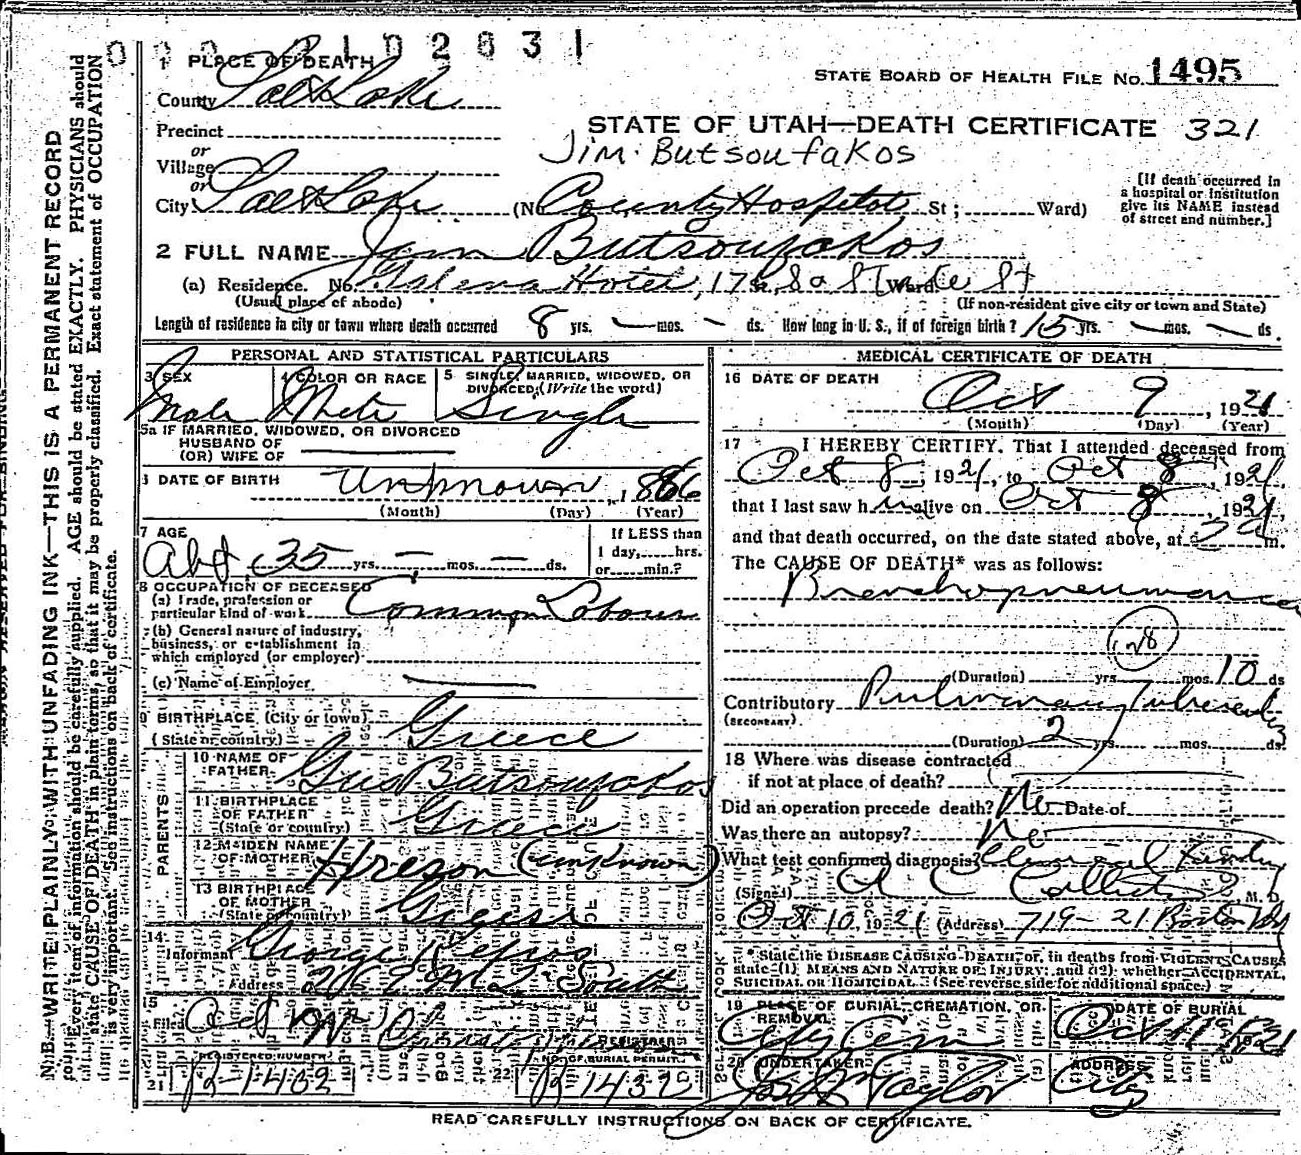 1 PLACE OF DEATH
County Salt Lake
STATE BOARD OF HEALTH FILE NO. 1495
Precinct
STATE OF UTAH—DEATH CERTIFICATE 321
or
Jim Butsoufakos
Village
or
City Salt Lake (No County Hospital St; Ward)
[If death occurred in
a hospital or institution
give its NAME instead
of street end number.]
2 FULL NAME Jim Butsoufakos
(a) Residence. No. Galena Hotel,
(Usual place of abode)
(If non-resident give city or town and State)
Length of residence in city or town where death occurred 8 yrs. — mos. — ds. How long in U. S., if of foreign birth? 15 yrs. — mos. — ds.
PERSONAL AND STATISTICAL PARTICULARS
3 SEX Male
4 COLOR OR RACE White
5 SINGLE, MARRIED, WIDOWED, OR
DIVORCED (Write the word) Single
5a IF MARRIED, WIDOWED, OR DIVORCED
HUSBAND OF
(OR) WIFE OF
DATE OF BIRTH Unknown, 1886
(Month) (Day) (Year)
7 AGE
Abt 35 yrs. — mos. — ds.
If LESS than
1 day, hrs.
or min.?
8 OCCUPATION OF DECEASED
(a) Trade, profession or
particular kind of work Common Laborer
(b) General nature of industry,
business, or establishment in
which employed (or employer)
(c) Name of Employer
BIRTHPLACE (City or town)
(State or country) Greece
PARENTS
10 NAME OF
FATHER Gus Butsoufakos
11 BIRTHPLACE
OF FATHER
(State or country) Greece
12 MAIDEN NAME
OF MOTHER (unknown)
13 BIRTHPLACE
OF MOTHER
(State or country) Greece
14
Informant George
Address South
15
Filed Oct
REGISTRAR
REGISTERED NUMBER
21 B-1402
NO. OF BURIAL PERMIT
22
MEDICAL CERTIFICATE OF DEATH
16 DATE OF DEATH
Oct 9, 1921
(Month) (Day) (Year)
17 I HEREBY CERTIFY, That I attended deceased from
Oct 8, 1921, to Oct 8, 1921,
that I last saw him alive on Oct 8, 1921,
and that death occurred, on the date stated above, at m.
The CAUSE OF DEATH* was as follows:
Bronchopneumonia
(Duration) yrs. mos. 10 ds
Contributory Pulmonary Tuberculosis
(SECONDARY)
(Duration) 2 yrs. mos. ds.
18 Where was disease contracted
if not at place of death?
Did an operation precede death? No Date of
Was there an autopsy? No
What test confirmed diagnosis?
(Signed) A C Callister M. D.
Oct 10, 1921 (Address) 719-21 Boston Bldg
* State the DISEASE CAUSING DEATH, or, in deaths from VIOLENT CAUSES
state (1) MEANS AND NATURE OF INJURY; and (2) whether ACCIDENTAL,
SUICIDAL OR HOMICIDAL. (See reverse side for additional space.)
19 PLACE OF BURIAL, CREMATION, OR
REMOVAL
City Cem
DATE OF BURIAL
20 UNDERTAKER
Taylor
ADDRESS
City
READ CAREFULLY INSTRUCTIONS ON BACK OF CERTIFICATE.
N. B.—WRITE PLAINLY WITH UNFADING INK—THIS IS A PERMANENT RECORD
Every item of information should be carefully supplied. AGE should be stated EXACTLY. PHYSICIANS should
state CAUSE OF DEATH in plain terms, so that it may be properly classified. Exact statement of OCCUPATION
is very important. See instructions on back of certificate.